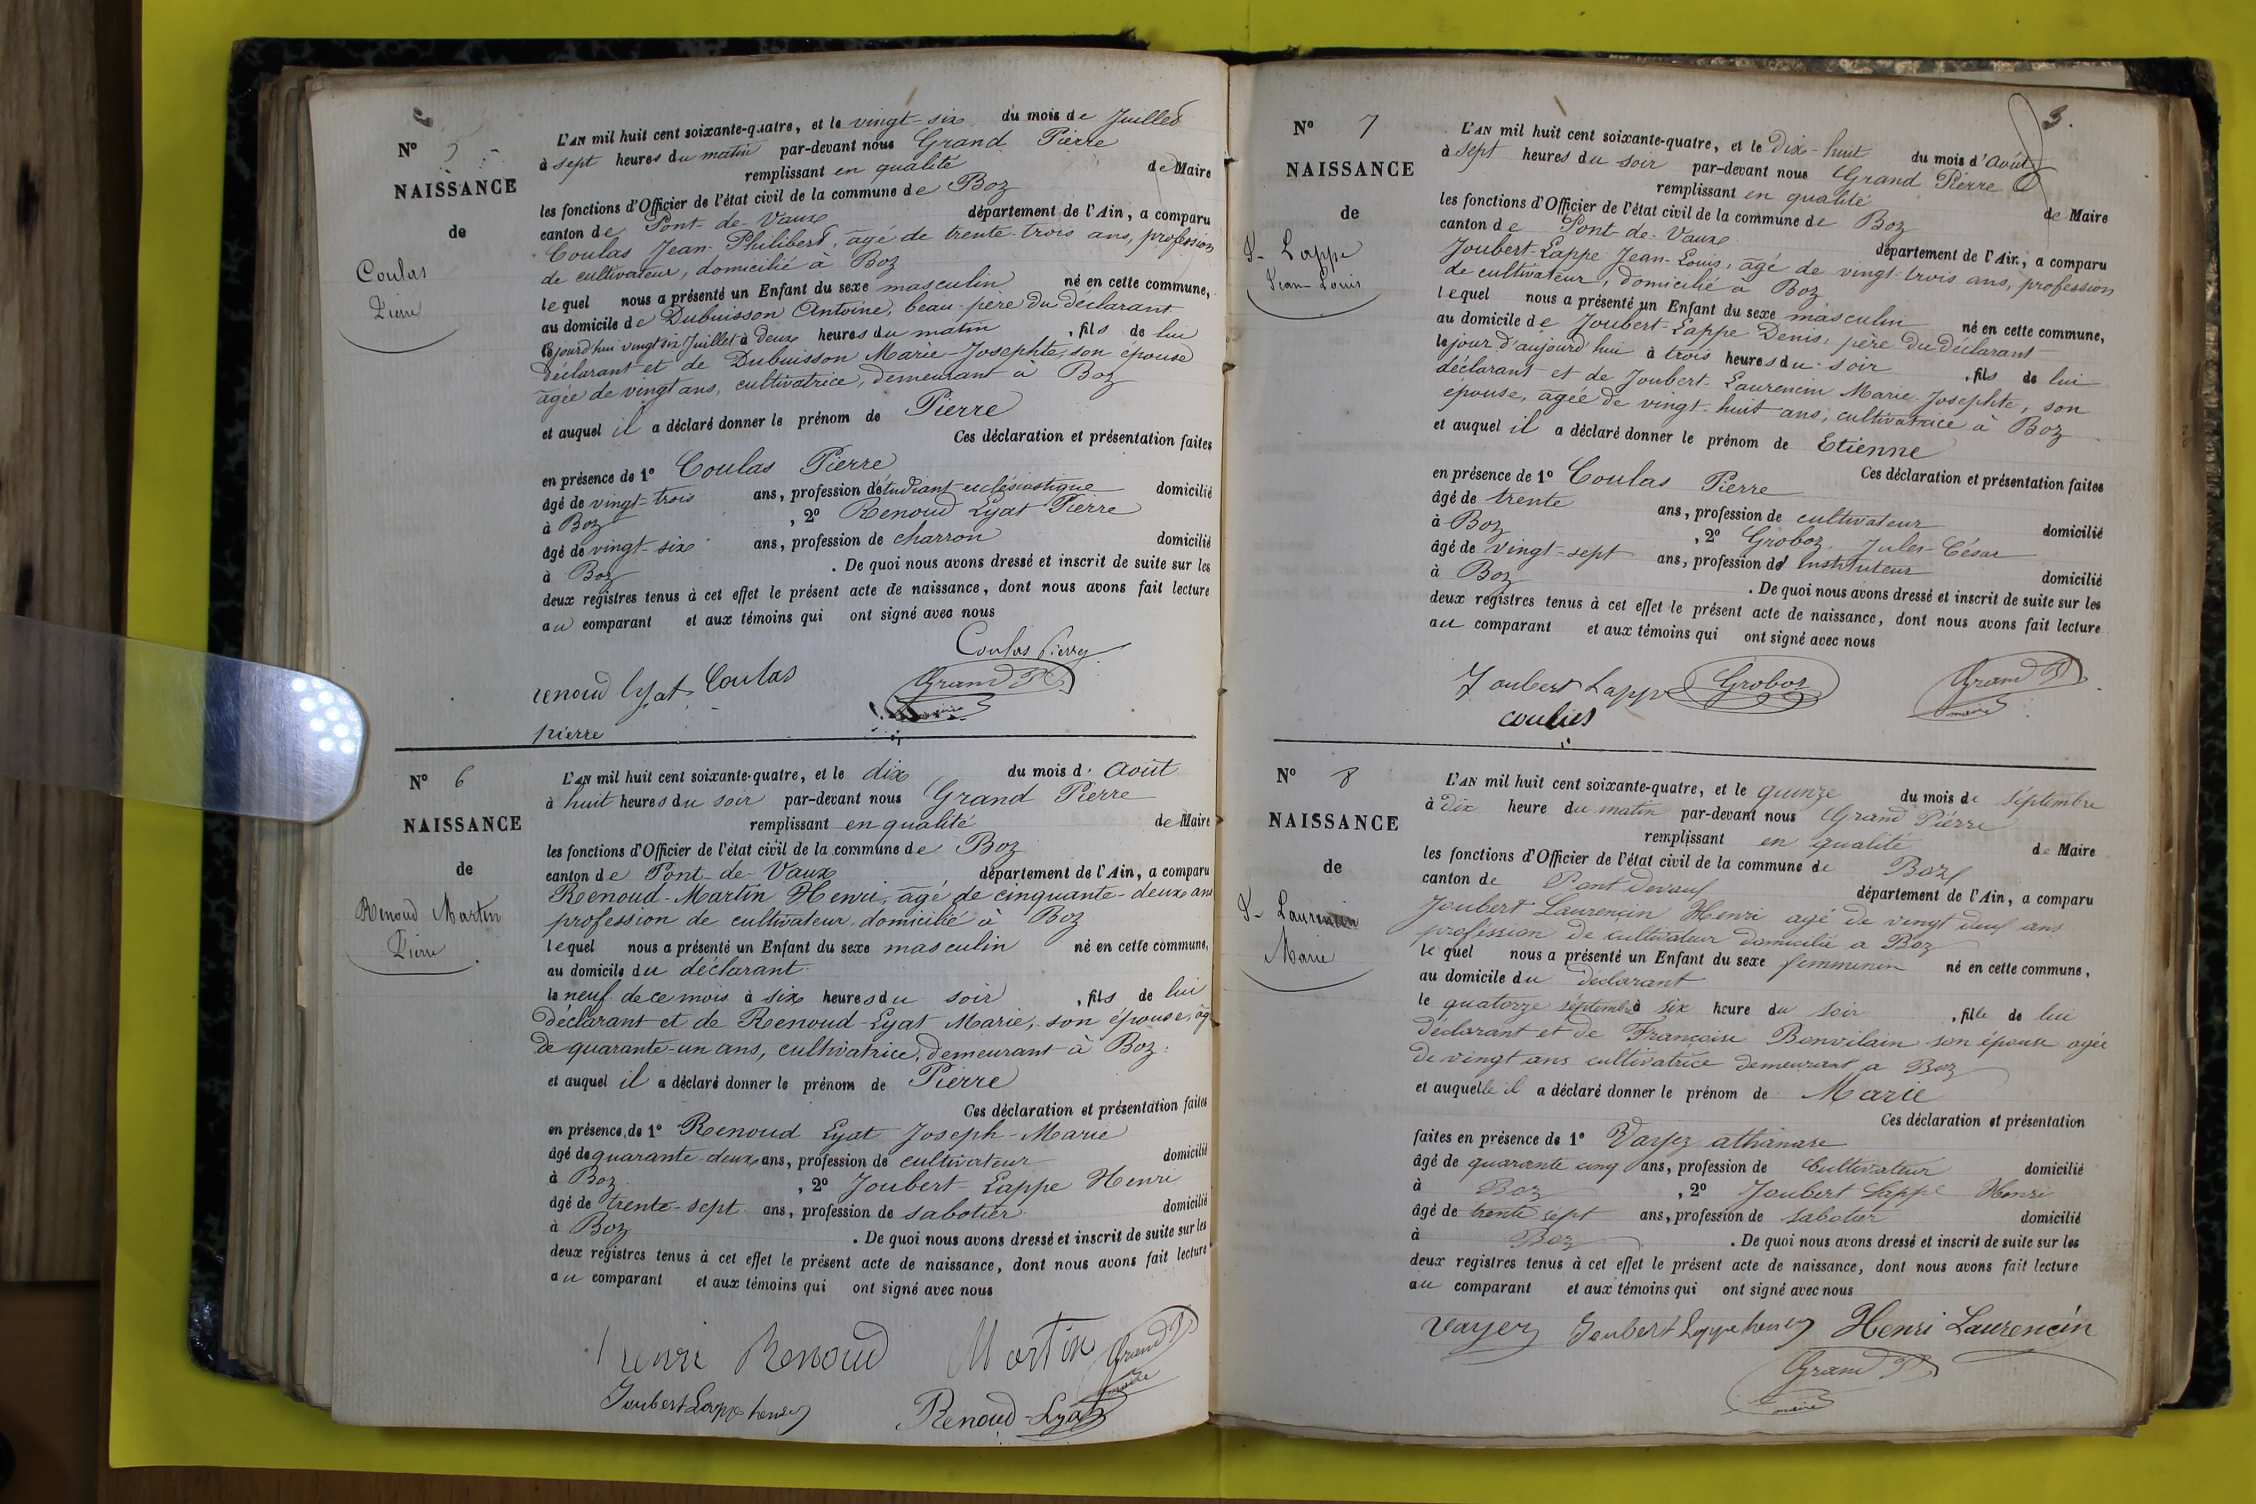 N° 5
NAISSANCE
de
Coulas
Pierre
L'AN mil huit cent soixante-quatre, et le vingt-six du mois de Juillet
à sept heures du matin par-devant nous Grand Pierre
remplissant en qualité de Maire
les fonctions d'Officier de l'état civil de la commune de Boz
canton de Pont-de-Vaux département de l'Ain, a comparu
Coulas Jean-Philibert, âgé de trente-trois ans, profession
de cultivateur, domicilié à Boz
lequel nous a présenté un Enfant du sexe masculin né en cette commune,
au domicile de Dubuisson Antoine, beau-père du déclarant
cejourd'hui vingt six Juillet à deux heures du matin, fils de lui
déclarant et de Dubuisson Marie-Josephte, son épouse
âgée de vingt ans, cultivatrice, demeurant à Boz
et auquel il a déclaré donner le prénom de Pierre
Ces déclaration et présentation faites
en présence de 1° Coulas Pierre
âgé de vingt-trois ans, profession d'étudiant ecclésiastique domicilié
à Boz, 2° Renoud Lyat Pierre
âgé de vingt-six ans, profession de charron domicilié
à Boz. De quoi nous avons dressé et inscrit de suite sur les
deux registres tenus à cet effet le présent acte de naissance, dont nous avons fait lecture
au comparant et aux témoins qui ont signé avec nous
Coulas Pierre
renoud lyat Coulas Grand P.
pierre
N° 6
NAISSANCE
de
Renoud Martin
Pierre
L'AN mil huit cent soixante-quatre, et le dix du mois d' Août
à huit heures du soir par-devant nous Grand Pierre
remplissant en qualité de Maire
les fonctions d'Officier de l'état civil de la commune de Boz
canton de Pont-de-Vaux département de l'Ain, a comparu
Renoud-Martin Henri, âgé de cinquante-deux ans
profession de cultivateur, domicilié à Boz
lequel nous a présenté un Enfant du sexe masculin né en cette commune,
au domicile du déclarant
le neuf de ce mois à six heures du soir, fils de lui
déclarant et de Renoud-Lyat Marie, son épouse, âg
de quarante-un ans, cultivatrice, demeurant à Boz.
et auquel il a déclaré donner le prénom de Pierre
Ces déclaration et présentation faites
en présence de 1° Renoud Lyat Joseph-Marie
âgé de quarante-deux ans, profession de cultivateur domicilié
à Boz, 2° Joubert-Lappe Henri
âgé de trente-sept ans, profession de sabotier domicilié
à Boz. De quoi nous avons dressé et inscrit de suite sur les
deux registres tenus à cet effet le présent acte de naissance, dont nous avons fait lecture
au comparant et aux témoins qui ont signé avec nous
henri Renoud Martin Grand P.
maire
Joubert Lappe henri Renoud-Lyat
3.
N° 7
NAISSANCE
de
J- Lappe
Jean-Louis
L'AN mil huit cent soixante-quatre, et le dix-huit du mois d'août
à sept heures du soir par-devant nous Grand Pierre
remplissant en qualité de Maire
les fonctions d'Officier de l'état civil de la commune de Boz
canton de Pont-de-Vaux département de l'Ain, a comparu
Joubert-Lappe Jean-Louis, âgé de vingt-trois ans, profession
de cultivateur, domicilié à Boz
lequel nous a présenté un Enfant du sexe masculin né en cette commune,
au domicile de Joubert-Lappe Denis, père du déclarant
le jour d'aujourd'hui à trois heures du soir, fils de lui
déclarant et de Joubert-Laurencin Marie-Josephte, son
épouse, âgée de vingt-huit ans, cultivatrice à Boz
et auquel il a déclaré donner le prénom de Etienne
Ces déclaration et présentation faites
en présence de 1° Coulas Pierre
âgé de trente ans, profession de cultivateur domicilié
à Boz, 2° Groboz Jules-César
âgé de vingt-sept ans, profession d'Instituteur domicilié
à Boz. De quoi nous avons dressé et inscrit de suite sur les
deux registres tenus à cet effet le présent acte de naissance, dont nous avons fait lecture
au comparant et aux témoins qui ont signé avec nous
Joubert Lappe Groboz Grand P.
maire
N° 8
NAISSANCE
de
J- Laurencin
Marie
L'AN mil huit cent soixante-quatre, et le quinze du mois de séptembre
à dix heure du matin par-devant nous Grand Piérre
remplissant en qualité de Maire
les fonctions d'Officier de l'état civil de la commune de Boz
canton de Pont Devaux département de l'Ain, a comparu
Joubert Laurençin Henri agé de vingt deux ans
profession de cultivateur domicilié a Boz
le quel nous a présenté un Enfant du sexe femminin né en cette commune,
au domicile du déclarant
le quatorze séptembre à six heure du soir, fille de lui
déclarant et de Françoise Bonvilain son épouse agée
de vingt ans cultivatrice demeurant a Boz
et auquelle il a déclaré donner le prénom de Marie
Ces déclaration et présentation
faites en présence de 1° Vayez athanase
âgé de quarante cinq ans, profession de Cultivateur domicilié
à Boz, 2° Joubert Lappe Henri
âgé de trente sept ans, profession de sabotier domicilié
à Boz. De quoi nous avons dressé et inscrit de suite sur les
deux registres tenus à cet effet le présent acte de naissance, dont nous avons fait lecture
au comparant et aux témoins qui ont signé avec nous
Vayez Joubert Lappe henri Henri Laurencin
Grand P.
maire